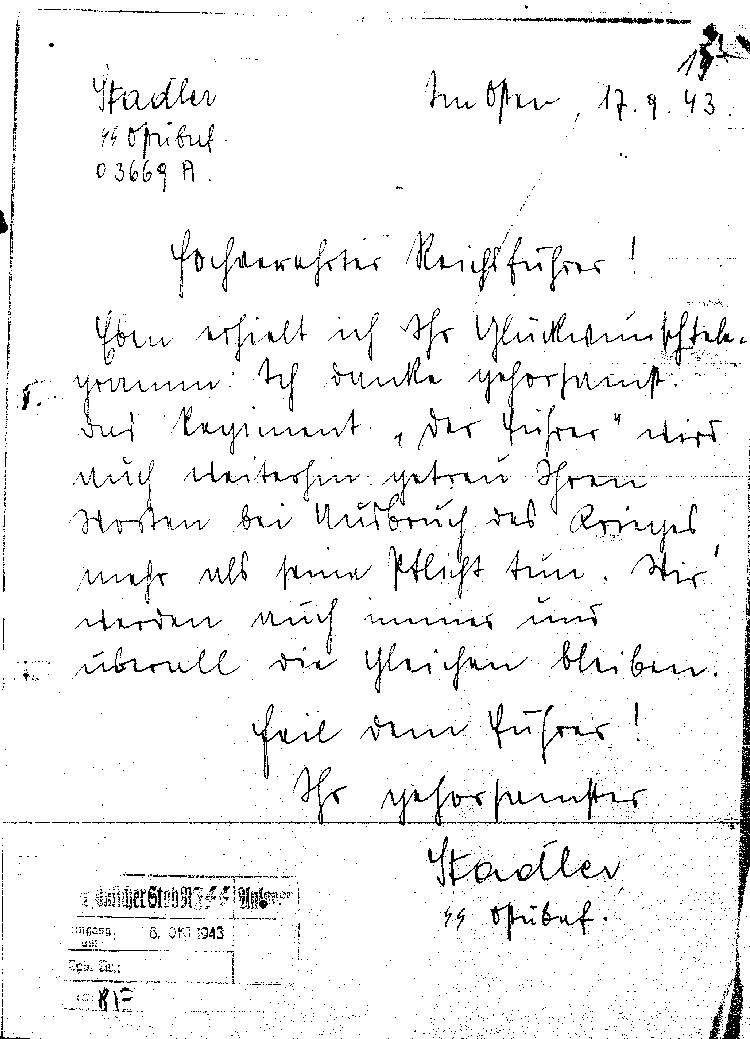 Stadler
Im Osten, 17.9.43.
SS Ostubaf.
03669 A.
Hochverehrter Reichsführer!
Eben erhielt ich Ihr Glückwunschtele-
gramm. Ich danke gehorsamst.
Das Regiment „Der Führer" wird
auch weiterhin getreu Ihren
Worten bei Ausbruch des Krieges
mehr als seine Pflicht tun. Wir
werden auch immer und
überall die Gleichen bleiben.
Heil dem Führer!
Ihr gehorsamster
Stadler
SS Ostubaf.
Persönlicher Stab RFSS
6. Okt. 1943
RF